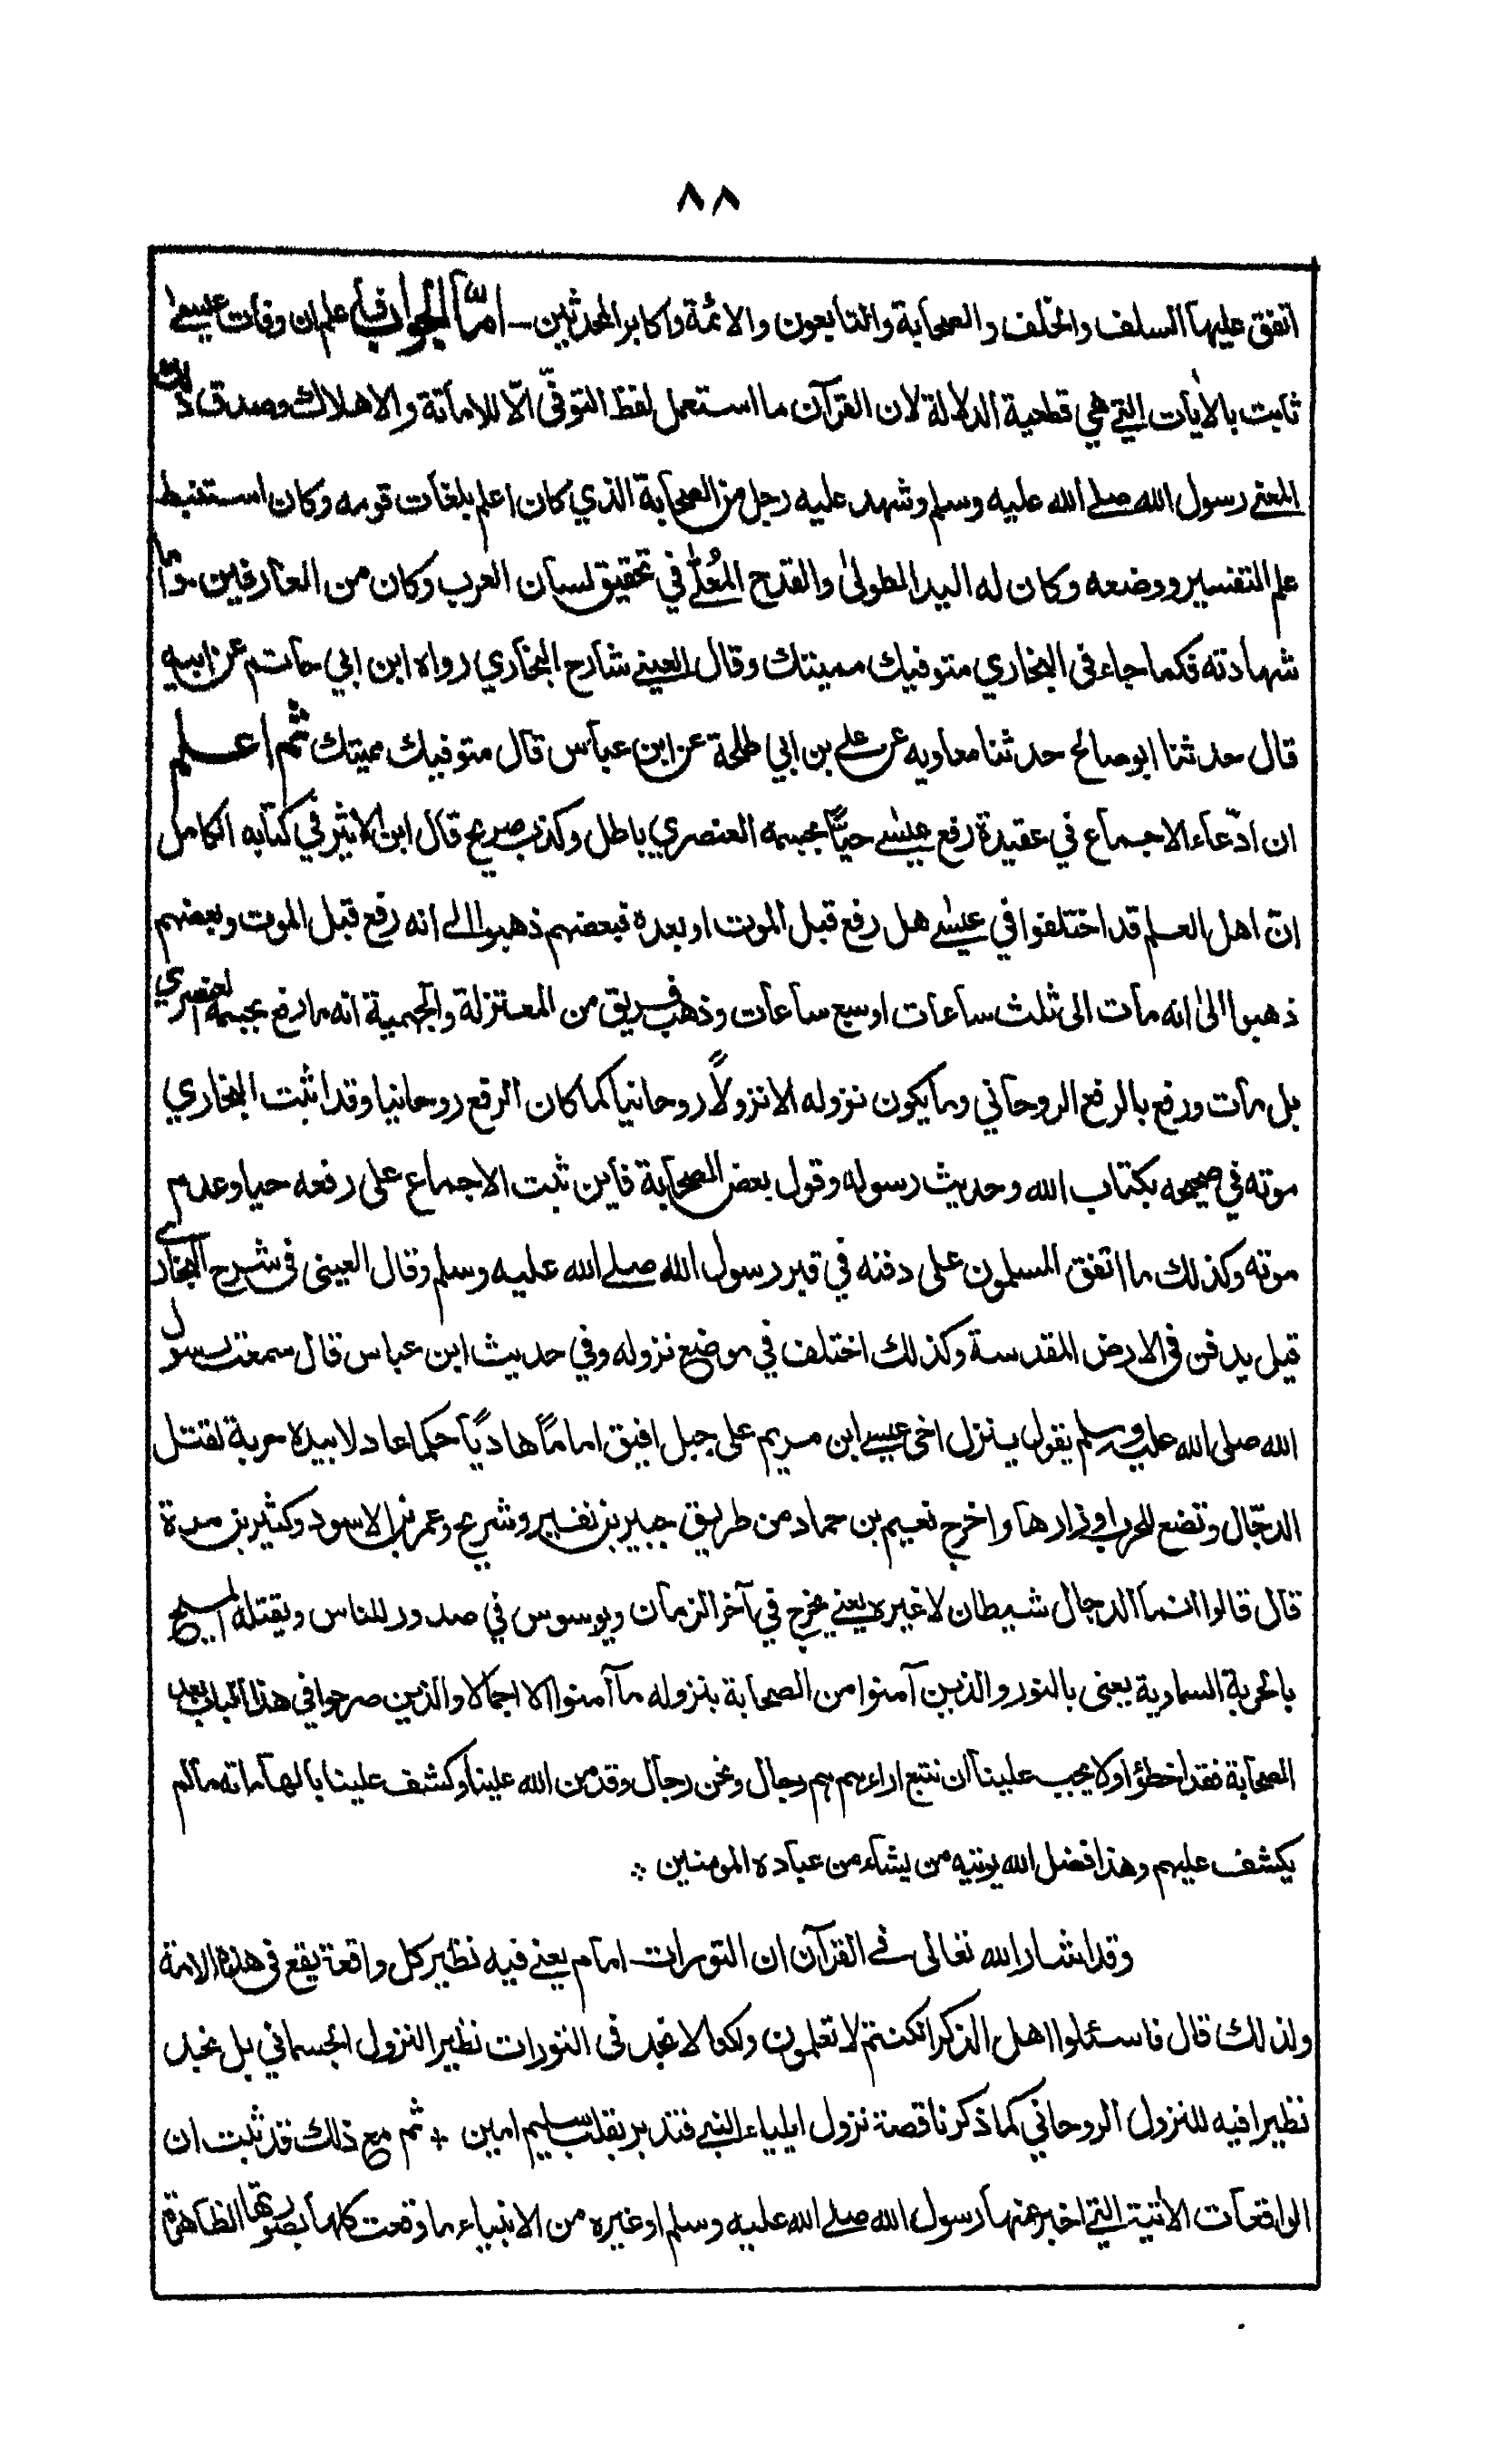 ٨٨
اتفق عليها السلف والخلف والصحابة والتابعون والائمة واكابر المحدثين ــ امّا الجواب فاعلم ان وفات عيسىٰ
ثابت بالاٰيات التي هي قطعية الدلالة لان القرآن ما استعمل لفظ التوفّي الّا للاماتة والاهلاك وصدق ذلك
المعنے رسول الله صلے الله عليه وسلم وشهد عليه رجل من الصحابة الذي كان اعلم بلغات قومه وكان استنبط
علم التفسير ووضعه وكان له اليد الطولىٰ والقدح المُعلّٰے في تحقيق لسان العرب وكان من العارفين ـ واما
شهادته فكما جاء فى البخاري متوفيك مميتك وقال العينے شارح البخاري رواه ابن ابي حاتم عن ابيه
قال حدثنا ابو صالح حدثنا معاويه عن علے بن ابي طلحة عن ابن عباس قال متوفيك مميتك ثم اعلم
ان ادّعاء الاجماع في عقيدة رفع عيسٰے حيًّا بجسمه العنصري باطل وكذب صريح قال ابن الاثير في كتابه الكامل
انّ اهل العلم قد اختلفوا في عيسٰے هل رفع قبل الموت او بعده فبعضهم ذهبوا الے انه رفع قبل الموت وبعضهم
ذهبوا الىٰ انه مات الى ثلث ساعات او سبع ساعات وذهب فريق من المعتزلة والجهمية انه ما رفع بجسمه العنصري
بل مات ورفع بالرفع الروحاني وما يكون نزوله الا نزولًا روحانيا كما كان الرفع روحانيا وقد اثبت البخاري
موته في صحيحه بكتاب الله وحديث رسوله وقول بعض الصحابة فاين ثبت الاجماع على رفعه حيا وعدم
موته وكذلك ما اتفق المسلمون على دفنه في قبر رسول الله صلے الله عليه وسلم وقال العينى فى شرح البخارى
قيل يدفن فى الارض المقدسة وكذلك اختلف في موضع نزوله وفي حديث ابن عباس قال سمعت رسول
الله صلى الله عليه وسلم يقول ينزل اخى عيسے ابن مريم على جبل افيق اماما هاديًا حكما عادلا بيده حربة لقتل
الدجّال وتضع الحرب اوزارها واخرج نعيم بن حماد من طريق جبير بن نفير وشريح وعمر بن الاسود وكثير بن مرة
قال قالوا انما الدجال شيطان لا غيره يعنے يخرج في آخر الزمان ويوسوس في صدور للناس ويقتله المسيح
بالحربة السماوية يعنى بالنور والذين آمنوا من الصحابة بنزوله ما آمنوا الا اجمالا والذين صرحوا في هذا الباب بعد
الصحابة فقد اخطؤا ولا يجب علينا ان نتبع اراءهم هم رجال ونحن رجال وقد من الله علينا وكشف علينا بالهاماته ما لم
يكشف عليهم وهذا فضل الله يوتيه من يشاء من عباده المومنين ۞
وقد اشار الله تعالى فے القرآن ان التورات امام يعنے فيه نظير كل واقعة يقع فى هذه الامة
ولذلك قال فاسئلوا اهل الذكر ان كنتم لا تعلمون ولكنا لا نجد فى التورات نظير النزول الجسماني بل نجد
نظيرا فيه للنزول الروحاني كما ذكرنا قصة نزول ايلياء النبے فتدبر بقلب سليم امين + ثم مع ذلك قد ثبت ان
الواقعات الاٰتية التے اخبر عنها رسول الله صلے الله عليه وسلم او غيره من الانبياء ما وقعت كلها بصورتها الظاهرة